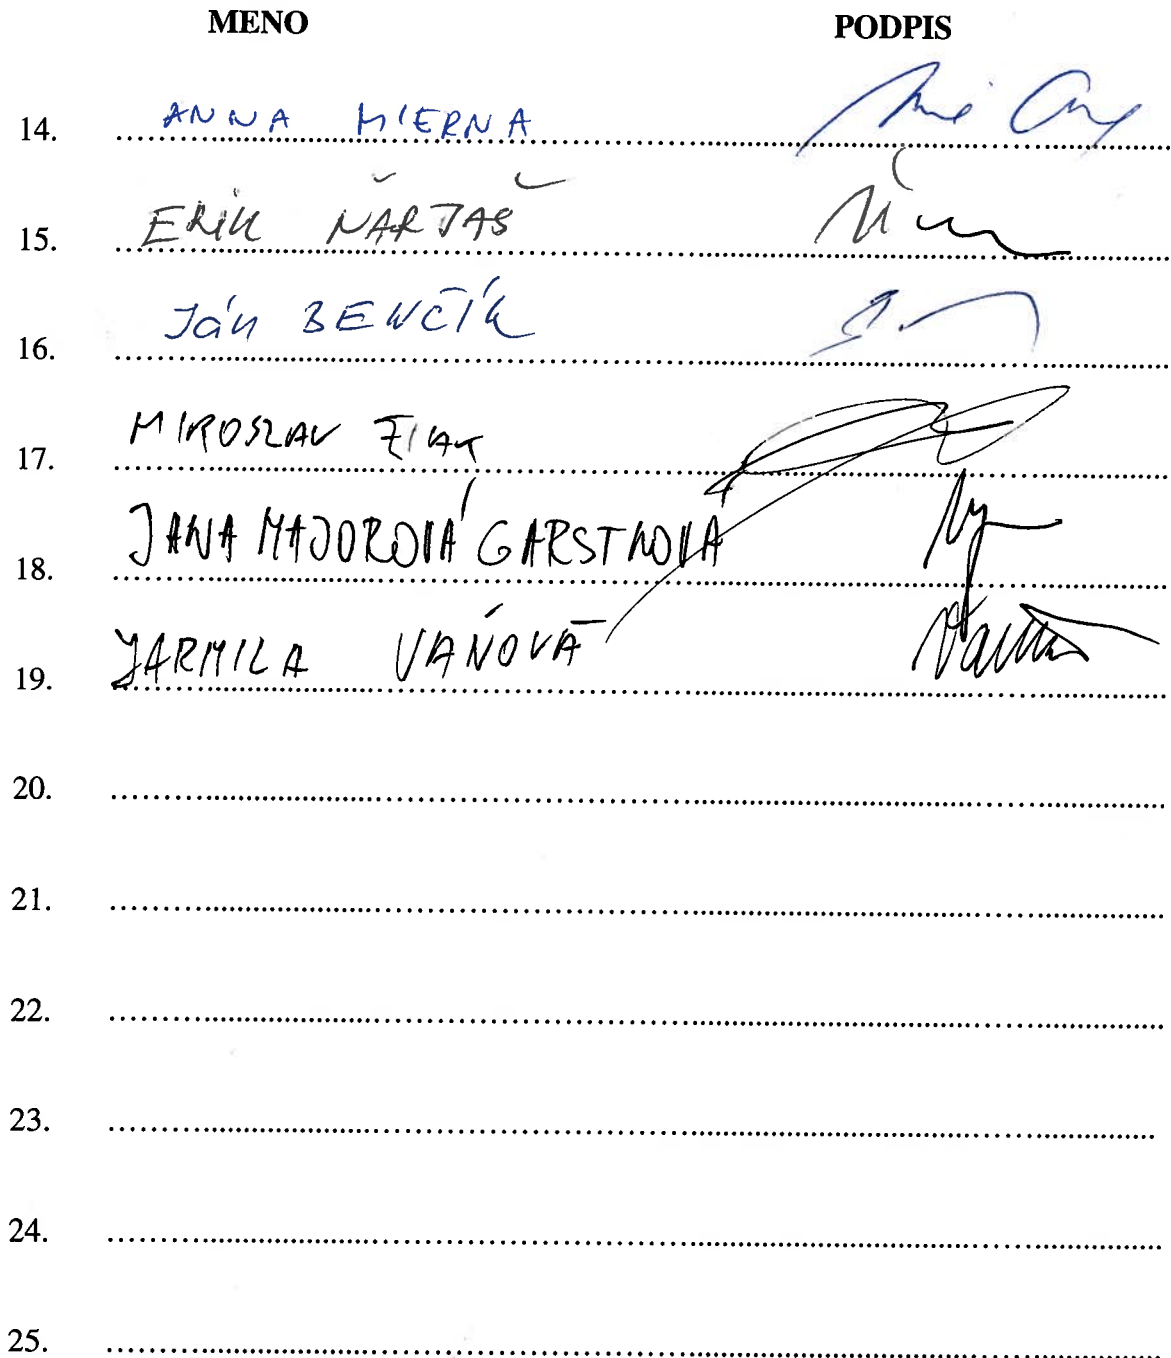 MENO PODPIS
14. ANNA MIERNA
15. ERIK ŇARJAŠ
16. Ján BENČÍK
17. MIROSLAV ŽIAK
18. JANA MAJOROVÁ GARSTKOVÁ
19. JARMILA VAŇOVÁ
20.
21.
22.
23.
24.
25.